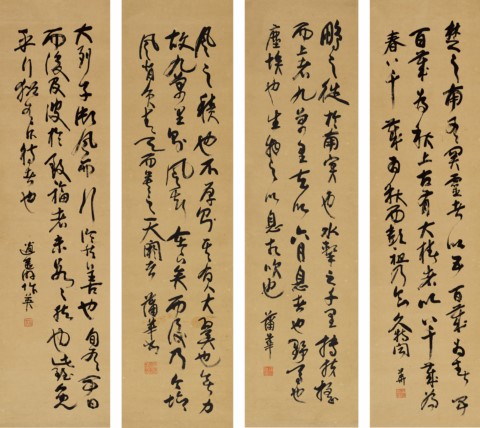 楚之南有冥靈者以五百歲為春五
百歲為秋上古有大椿者以八千歲為
春八千歲為秋而彭祖乃今久特聞 華
鵬之徙於南冥也水擊三千里摶扶搖
而上者九萬里去以六月息者也野馬也
塵埃也生物之以息相吹也 蒲華
風之積也不厚則其負大翼也無力
故九萬里則風斯在下矣而後乃今培
風背負青天而莫之夭閼者 蒲華
夫列子御風而行泠然善也旬有五日
而後反彼於致福者未數數然也雖免
乎行猶有所待者也